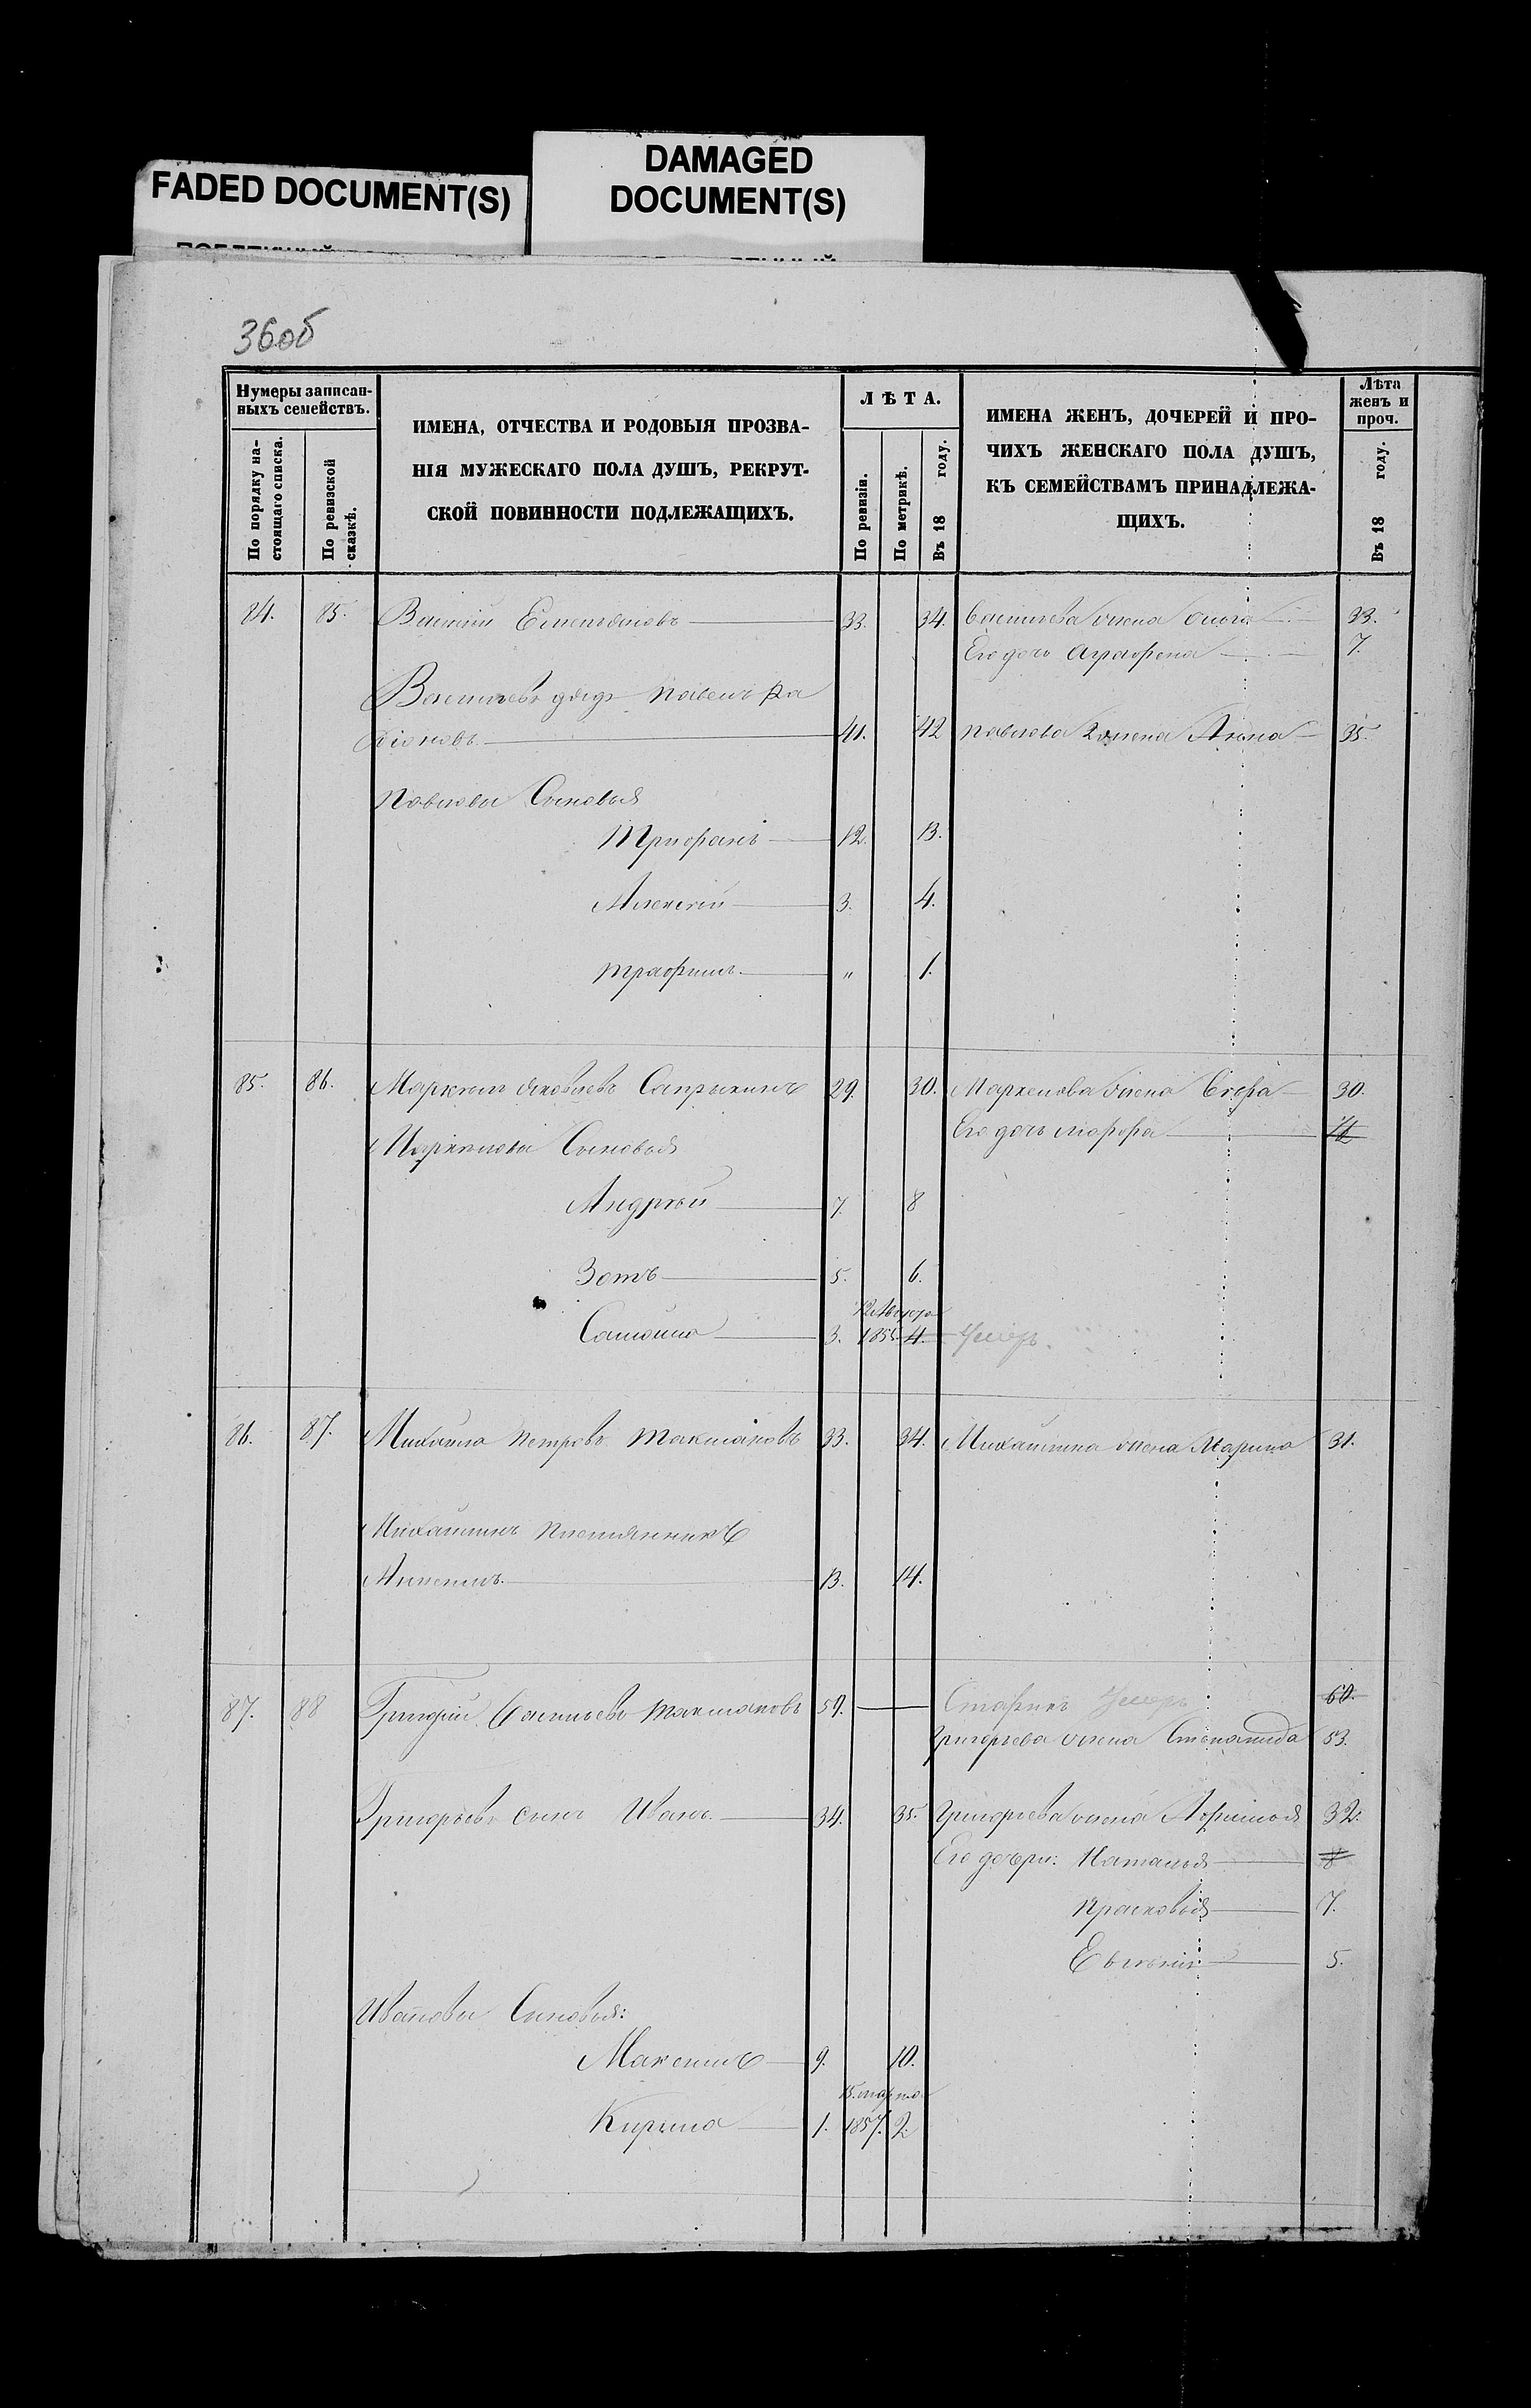 FADED DOCUMENT(S)
DAMAGED
DOCUMENT(S)
36об
Нумеры записан-
ныхъ семействъ.
По порядку на-
стоящаго списка.
По ревизской
сказкѣ.
ИМЕНА, ОТЧЕСТВА И РОДОВЫЯ ПРОЗВА-
НІЯ МУЖЕСКАГО ПОЛА ДУШЪ, РЕКРУТ-
СКОЙ ПОВИННОСТИ ПОДЛЕЖАЩИХЪ.
ЛѢТА.
По ревизіи.
По метрикѣ.
Въ 18 году.
ИМЕНА ЖЕНЪ, ДОЧЕРЕЙ И ПРО-
ЧИХЪ ЖЕНСКАГО ПОЛА ДУШЪ,
КЪ СЕМЕЙСТВАМЪ ПРИНАДЛЕЖА-
ЩИХЪ.
Лѣта
женъ и
проч.
Въ 18 году.
84. 85. Василій Емельяновъ 33. 34. Васильева жена Ольга 33.
Его дочь Аграфена 7.
Васильевъ дядя Павелъ Ра
діоновъ 41. 42 Павлова жена Анна 35.
Павловы Сыновья
Трифонъ 12. 13.
Алексѣй 3. 4.
Трафимъ „ 1.
85. 86. Маркелъ Яковлевъ Сапрыкинъ 29. 30. Маркелова жена 30.
Его дочь
Маркеловы Сыновья
Андрей 7. 8
Зотъ 5. 6.
Самойла 3. 4. Умеръ.
86. 87. Михайла Петровъ 33. 34. Михайлина жена Марина 31.
Михайлинъ племянникъ
13. 14.
87. 88 Григорій Васильевъ 59. Старикъ Умеръ 60.
Григорьева жена Степанида 53.
Григорьевъ сынъ Иванъ 34. 35. Григорьева жена Афимья 32.
Его дочери: Наталья 8
Прасковья 7.
5.
Ивановы Сыновья:
Максимъ 9. 10.
15. марта
Кирила 1. 1857. 2.